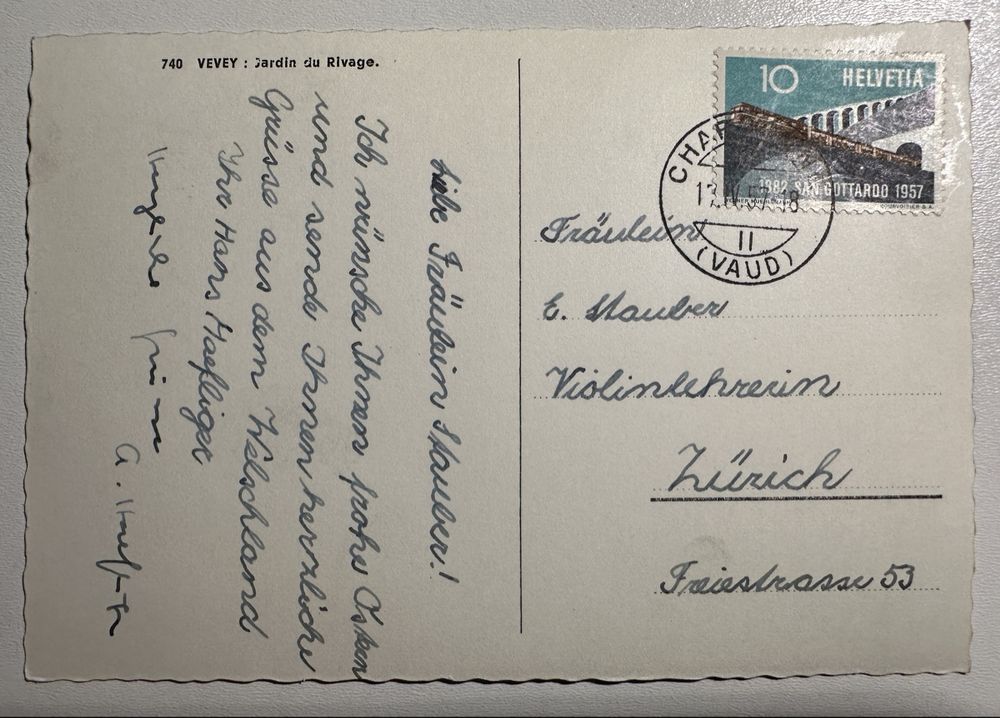 740 VEVEY : Jardin du Rivage.
Liebe Fräulein Stauber!
Ich wünsche Ihnen frohe Ostern
und sende Ihnen herzliche
Grüsse aus dem Welschland
Ihr Hans Haefliger
A.
10 HELVETIA
1882 SAN GOTTARDO 1957
COURVOISIER S.A.
II
(VAUD)
Fräulein
E. Stauber
Violinlehrerin
Zürich
Freiestrasse 53